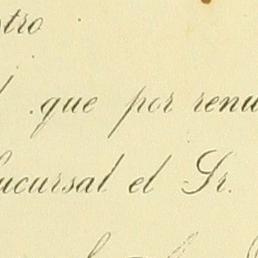 stro
que por renu
ucursal el Sr.